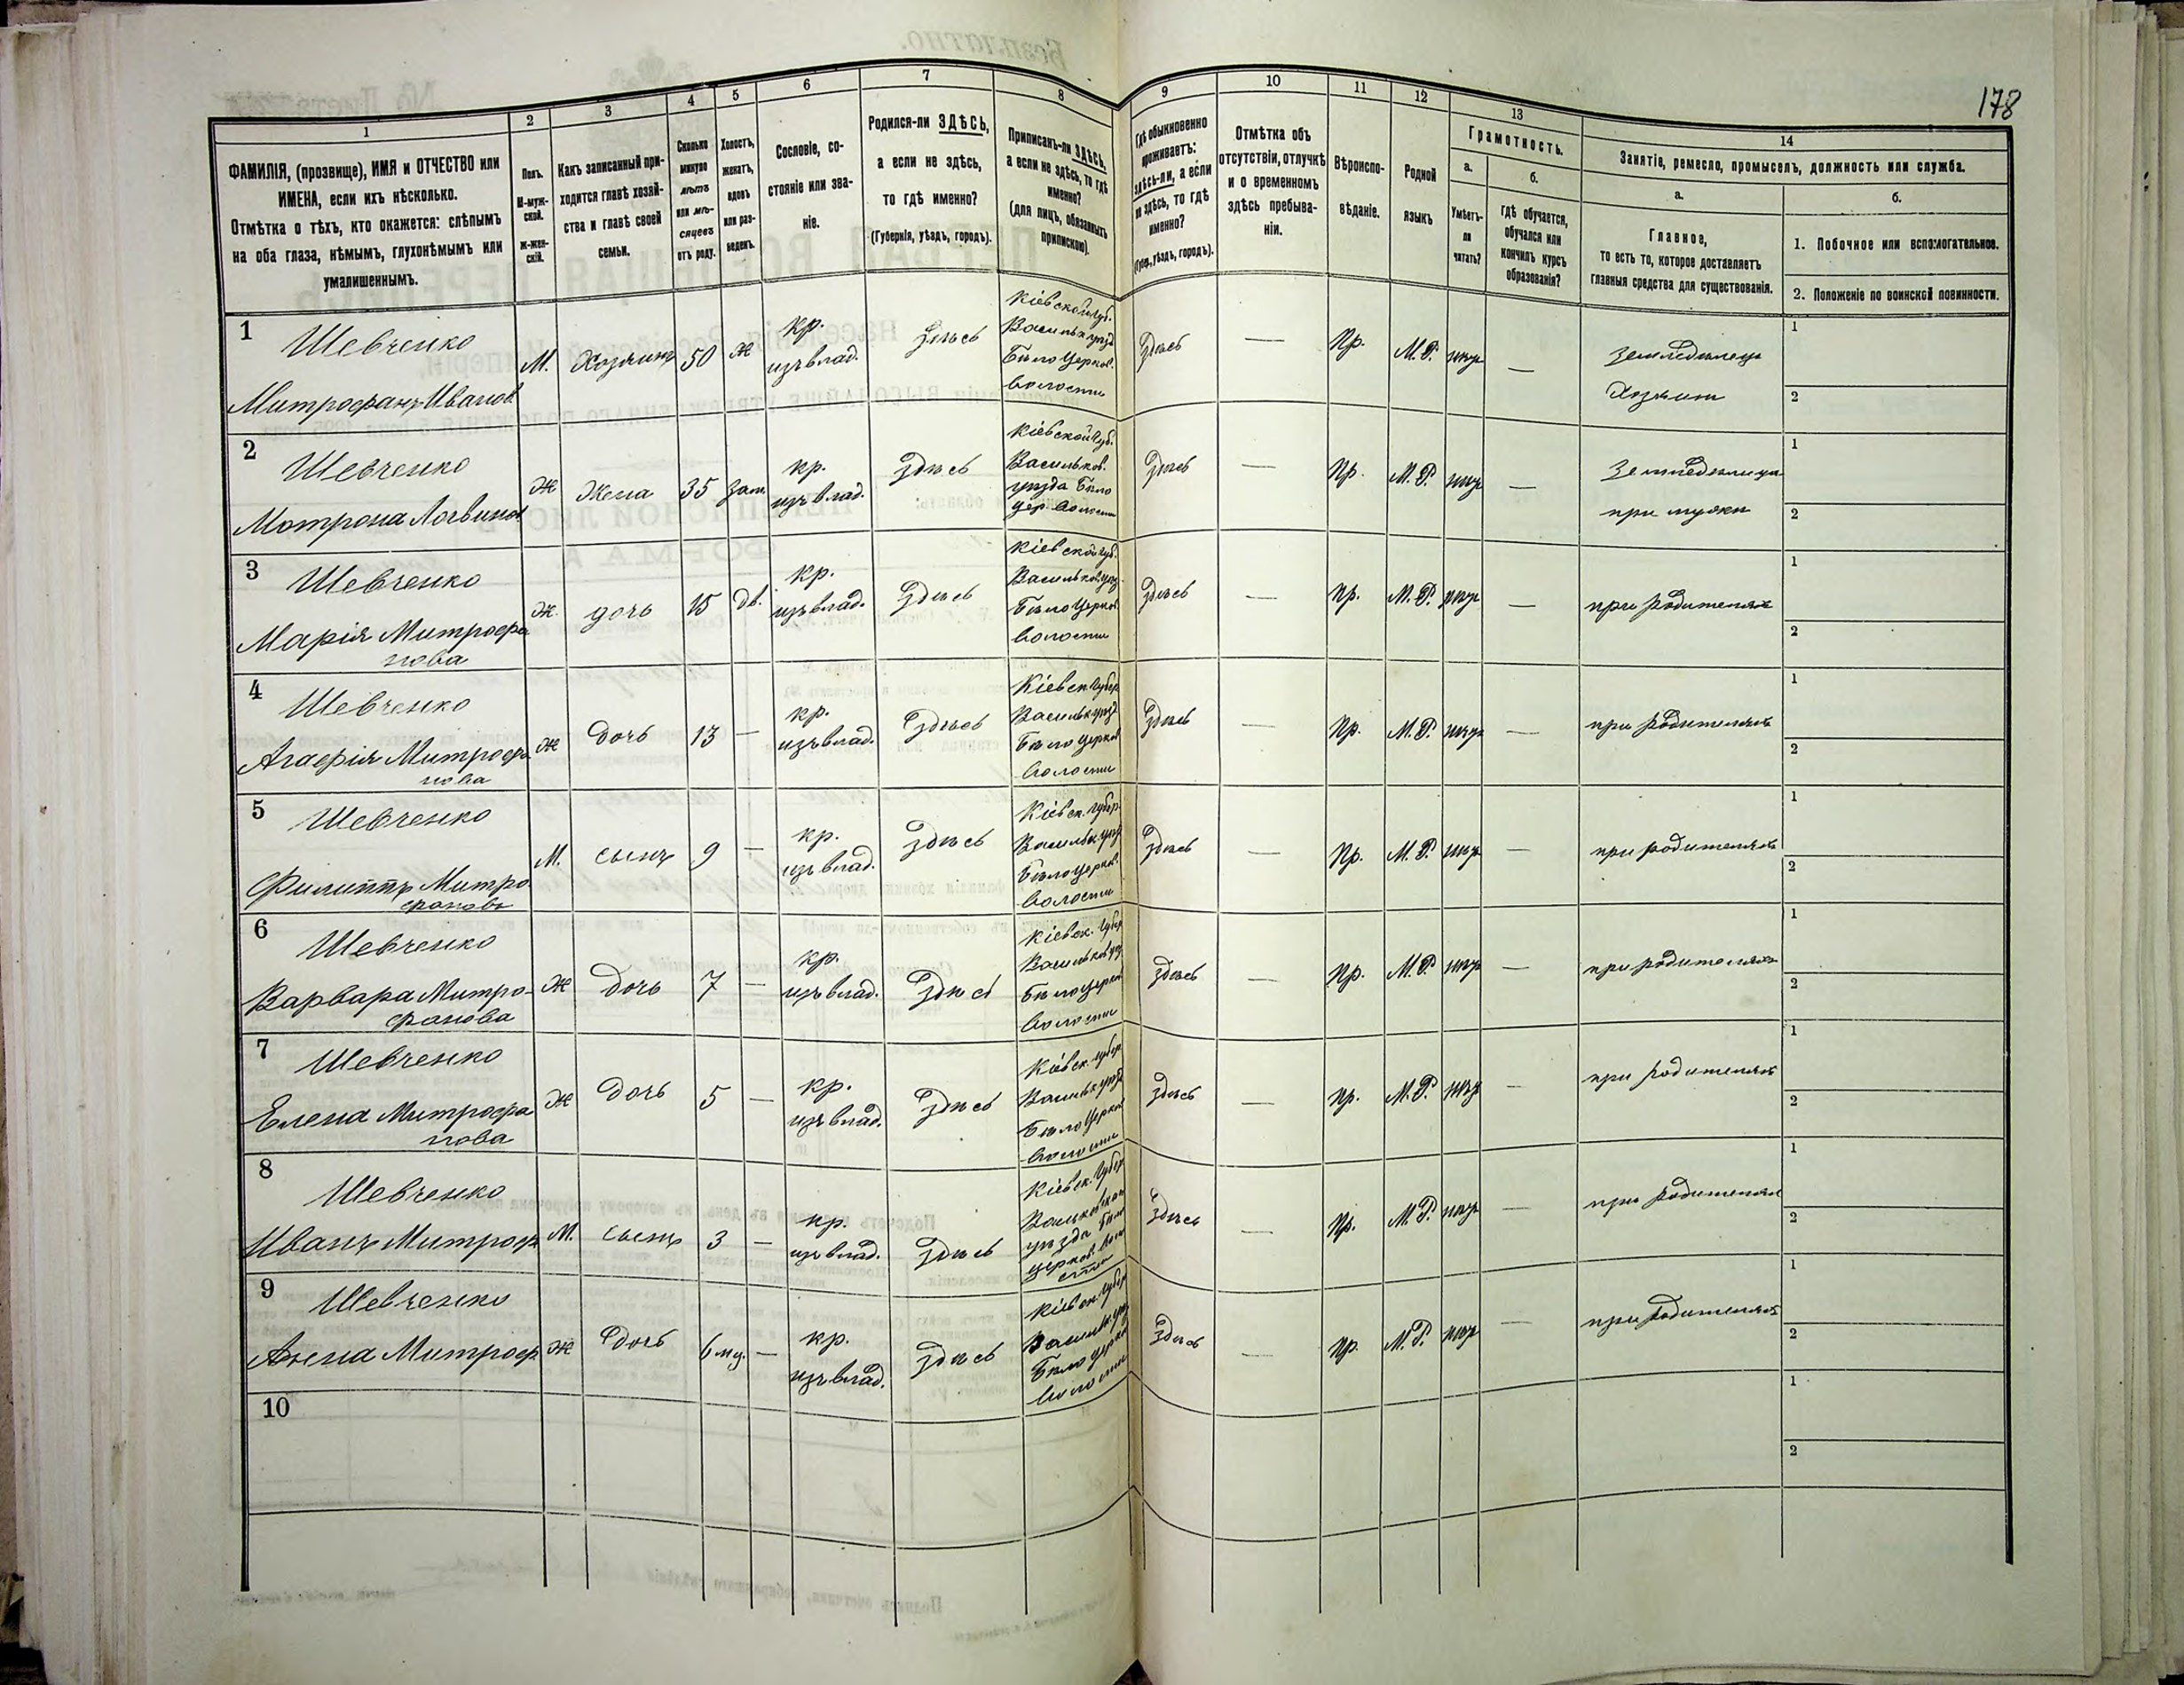 178
1
ФАМИЛІЯ, (прозвище), ИМЯ и ОТЧЕСТВО или
ИМЕНА, если ихъ нѣсколько.
Отмѣтка о тѣхъ, кто окажется: слѣпымъ
на оба глаза, нѣмымъ, глухонѣмымъ или
умалишеннымъ.
2
Полъ.
М-муж-
ской.
Ж-жен-
скій.
3
Какъ записанный при-
ходится главѣ хозяй-
ства и главѣ своей
семьи.
4
Сколько
минуло
лѣтъ
или мѣ-
сяцевъ
отъ роду.
5
Холостъ,
женатъ,
вдовъ
или раз-
веденъ.
6
Сословіе, со-
стояніе или зва-
ніе.
7
Родился-ли ЗДѢСЬ,
а если не здѣсь,
то гдѣ именно?
(Губернія, уѣздъ, городъ).
8
Приписанъ-ли ЗДѢСЬ,
а если не здѣсь, то гдѣ
именно?
(для лицъ, обязанныхъ
припискою).
9
Гдѣ обыкновенно
проживаетъ:
здѣсь-ли, а если
не здѣсь, то гдѣ
именно?
(Губер., уѣздъ, городъ).
10
Отмѣтка объ
отсутствіи, отлучкѣ
и о временномъ
здѣсь пребыва-
ніи.
11
Вѣроиспо-
вѣданіе.
12
Родной
языкъ
13
Грамотность.
а.
Умѣетъ-
ли
читать?
б.
гдѣ обучается,
обучался или
кончилъ курсъ
образованія?
14
Занятіе, ремесло, промыселъ, должность или служба.
а.
Главное,
то есть то, которое доставляетъ
главныя средства для существованія.
б.
1. Побочное или вспомогательное.
2. Положеніе по воинской повинности.
1
Шевченко
Митрофанъ Иванов
М.
Хозяинъ
50
ж
кр.
изъ влад.
Здѣсь
Кіевской губ.
Васильк уѣзд
Бѣло Церков.
волости
Здѣсь
—
Пр.
М. Р.
нѣтъ
—
земледѣлецъ
Хозяинъ
1
2
2
Шевченко
Мотрона Логвинов
Ж
Жена
35
зам.
кр.
изъ влад.
Здѣсь
Кіевской губ.
Васильков.
уѣзда Бѣло
цер. волости
Здѣсь
—
Пр.
М. Р.
нѣтъ
—
земледѣлица
при мужѣ
1
2
3
Шевченко
Марія Митрофа
нова
Ж.
дочь
15
дв.
кр.
изъ влад.
Здѣсь
Кіевской губ.
Васильков. уѣз.
Бѣло Церков
волости
Здѣсь
—
Пр.
М. Р.
нѣтъ
—
при родителяхъ
1
2
4
Шевченко
Агафія Митрофа
нова
Ж
дочь
13
—
кр.
изъ влад.
Здѣсь
Кіевск. губер
Васильк уѣзд
Бѣло Церков
волости
Здѣсь
—
Пр.
М. Р.
нѣтъ
—
при родителяхъ
1
2
5
Шевченко
Филиппъ Митро
фановъ
М.
сынъ
9
—
кр.
изъ влад.
Здѣсь
Кіевск. губер.
Васильк. уѣзд
Бѣлоцерков.
волости
Здѣсь
—
Пр.
М. Р.
нѣтъ
—
при родителяхъ
1
2
6
Шевченко
Варвара Митро-
фанова
Ж
дочь
7
—
кр.
изъ влад.
Здѣсь
Кіевск. губер
Васильков уѣз
Бѣлоцерков
волости
Здѣсь
—
Пр.
М. Р.
нѣтъ
—
при родителяхъ
1
2
7
Шевченко
Елена Митрофа
нова
Ж
дочь
5
—
кр.
изъ влад.
Здѣсь
Кіевск. губер
Васильк уѣзд
Бѣло Церков
волости
Здѣсь
—
Пр.
М. Р.
нѣтъ
—
при родителяхъ
1
2
8
Шевченко
Иванъ Митроф
М.
сынъ
3
—
кр.
изъ влад.
Здѣсь
Кіевск. губер
уѣзда Бѣло
церков. воло
сти
Здѣсь
—
Пр.
М. Р.
нѣтъ
—
при родителях
1
2
9
Шевченко
Анна Митроф.
Ж
дочь
6 мц.
—
кр.
изъ влад.
Здѣсь
Кіевск. губер
Васильк. уѣз
Бѣло церков
волости
Здѣсь
—
Пр.
М. Р.
нѣтъ
—
при родителяхъ
1
2
10
1
2